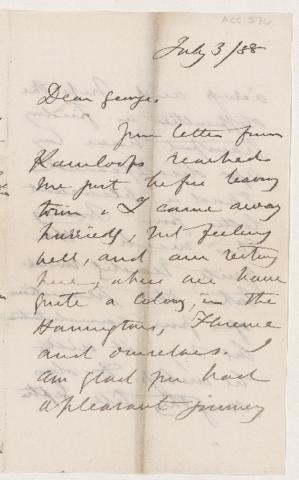 ACC 576
July 3/88
Dear George,
Your letter from
Kamloops reached
me just before leaving
town & I came away
hurriedly, not feeling
well, and am resting
here, where we have
quite a colony, in the
Harringtons,
and ourselves. I
am glad you had
a pleasant journey